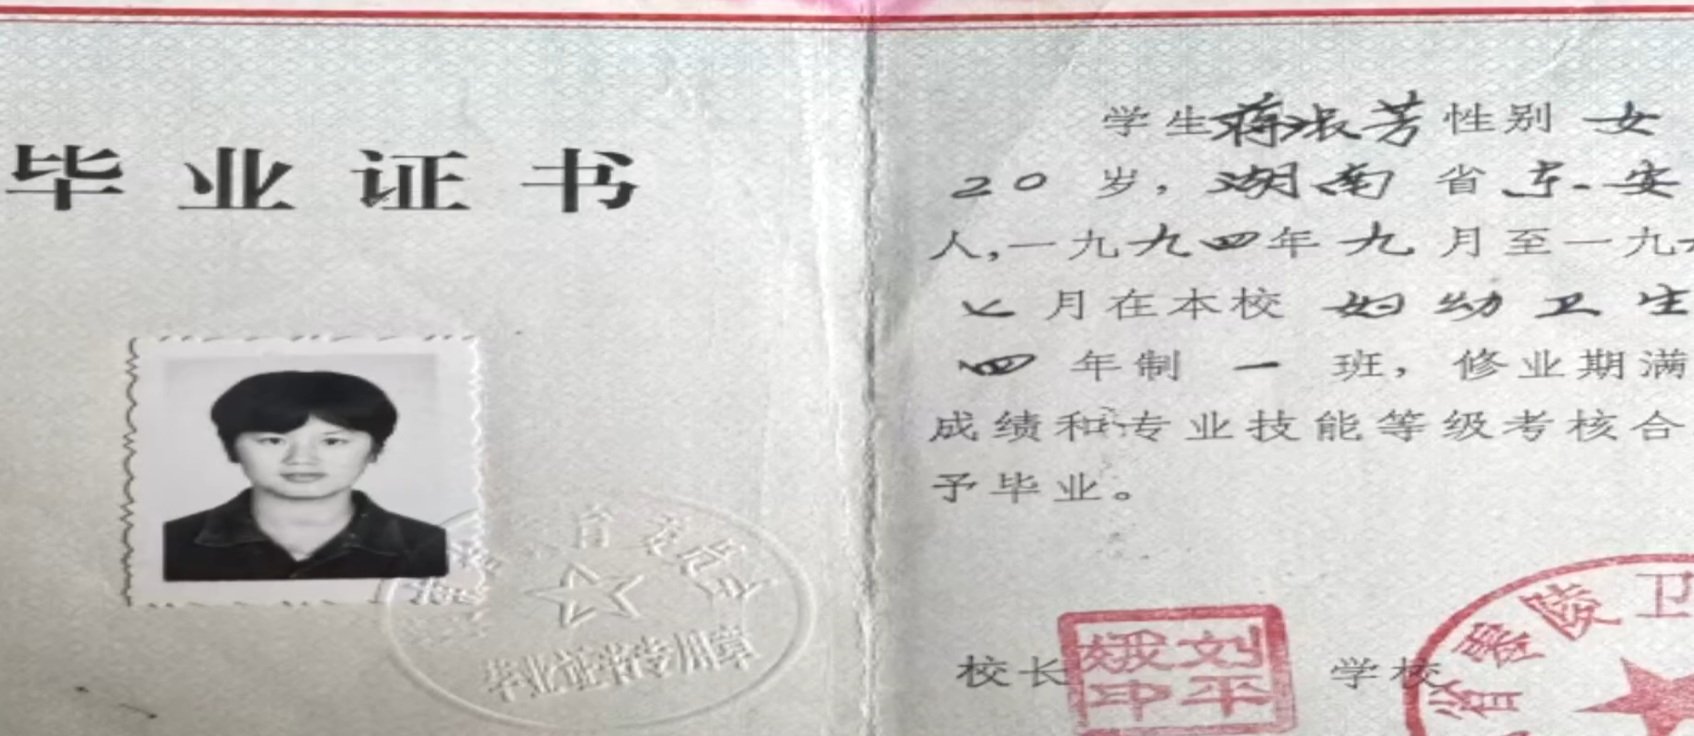 毕业证书
学生蒋淑芳性别 女
20 岁，湖南省东安
人，一九九四年九月至一九
七月在本校 妇幼卫生
四年制 一 班，修业期满
成绩和专业技能等级考核合
予毕业。
毕业证书专用章
校长
刘平
印
学校
省零陵卫